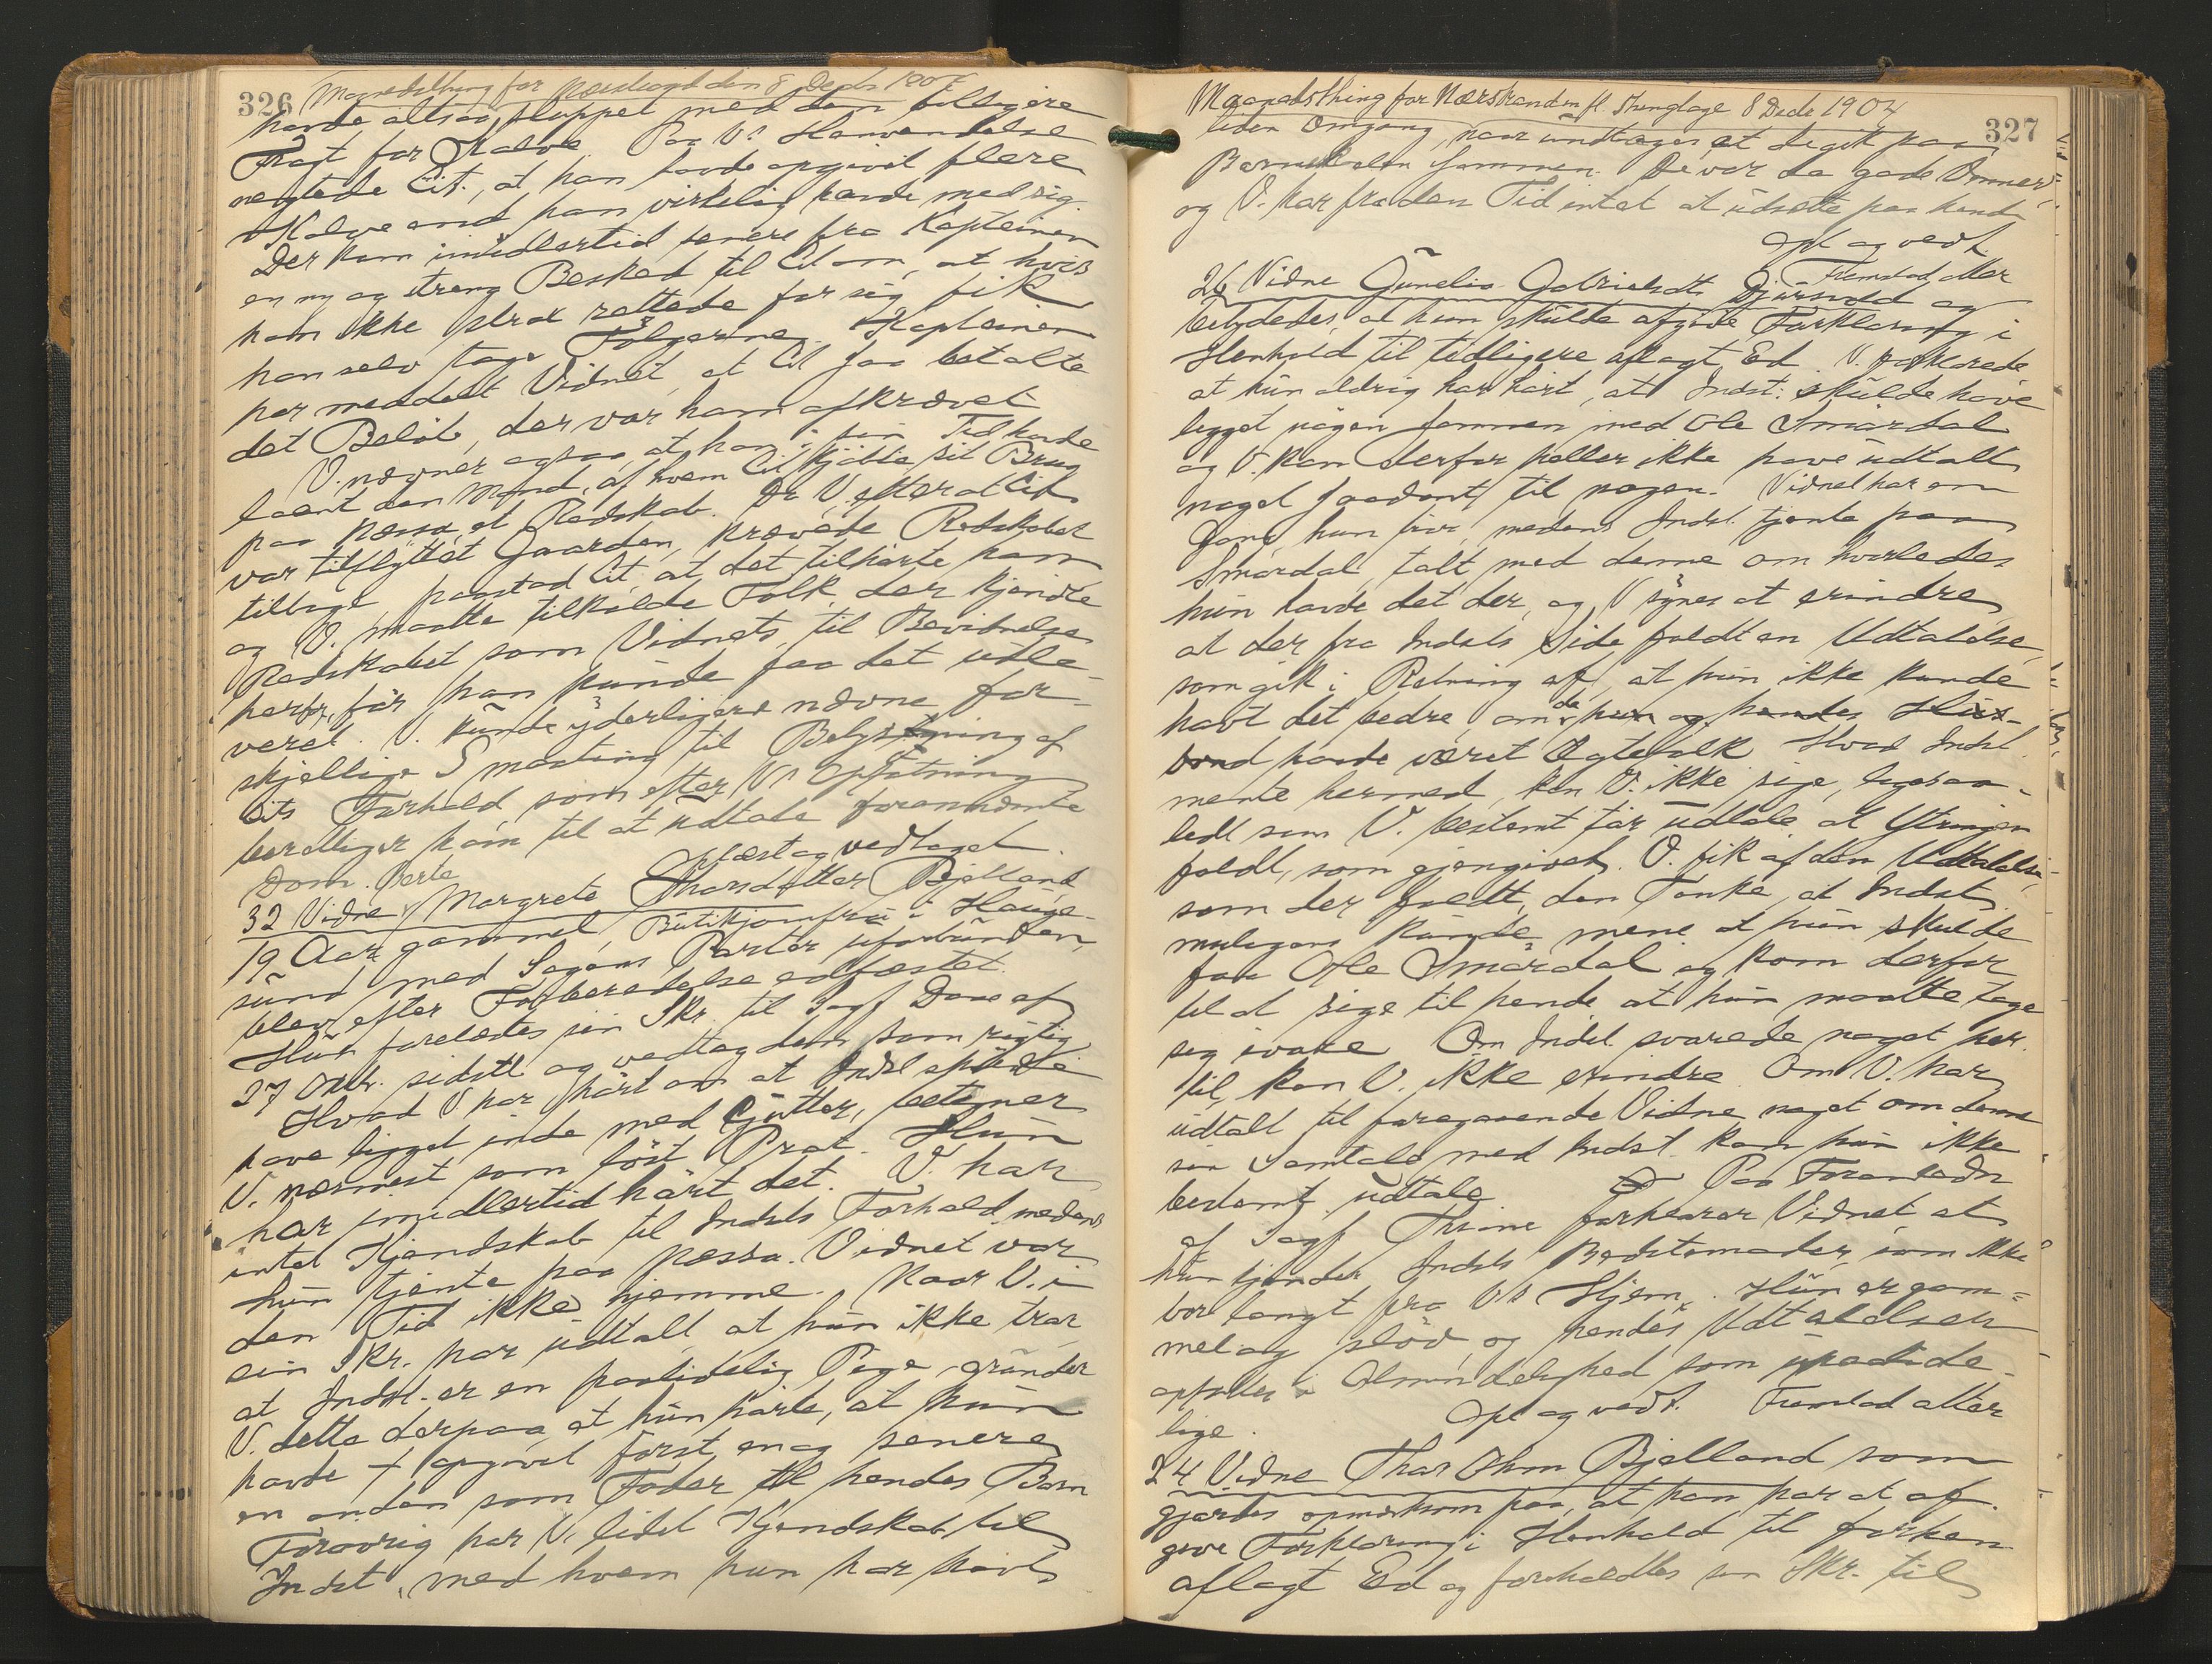 326 Maanedsthing for den 8 Decbr 1904
havde altsaa sluppet med den billigere
Fragt for Kalve. Paa V's Henvendelse
negtede Cit., at han havde opgivet flere
Kalve end han virkelig havde med sig.
Der kom imidlertid senere fra Kapteinen
en ny og streng Besked til Cit om, at hvis
han ikke strax rettede for sig fik
han selv tage Følgerne. Kapteinen
har meddelt Vidnet, at Cit saa betalte
det Beløb, der var ham afkrævet.
V. nævner ogsaa, at han i sin Tid havde
laant den Mand, af hvem Cit kjøbte sit Brug
paa Næssa, et Redskab. Da V. efter at Cit
var tilflyttet Gaarden, krævede Redskabet
tilbage, paastod Cit, at det tilhørte ham
og V. maatte tilkalde Folk, der kjendte
Redskabet som Vidnets, til Bevidnelse
herfor, før han kunde faa det udle-
veret. V. kunde yderligere nævne for-
skjellige Smaating til Belysning af
Cits Forhold, som efter V's Opfatning
berettiger ham til at udtale forannævnte
Dom. Oplæst og vedtaget.
32 Vidne Margrete Thorsdatter Bjelland
19 Aar gammel, Butikjomfru i Hauge-
sund med Sagens Parter uforbunden,
blev efter Forberedelse edfæstet.
Hun forelædes sin Skr. til Sagf Dove af
27 Oktbr. sidstl og vedtog den som rigtig
Hvad V. har hørt om at Indst skulde
have ligget inde med Gutter, betegner
V. nærmest som løst Prat. Hun
har imidlertid hørt det. V. har
intet Kjendskab til Indsts Forhold, medens
hun tjente paa Næssa. Vidnet var
den Tid ikke hjemme. Naar V. i
sin Skr. har udtalt at hun ikke tror
at Indst. er en paalidelig Pige, grunder
V. dette derpaa, at hun hørte, at hun
havde opgivet først en og senere
en anden som Fader til hendes Barn
Forøvrig har V. lidet Kjendskab til
Indst, med hvem hun har havt
Maanedsthing for Nærstrand m fl. Thinglage 8 Decbr 1904
327
liden Omgang, naar undtages at de gik paa
Barneskolen sammen. De var da gode Venner,
og V. har fra den Tid intet at udsætte paa hende
Opl og vedt.
Fremstod atter
26 Vidne Gunelia Gabrielsdt. Djursvold og
betydedes, at hun skulde afgive Forklaring i
Henhold til tidligere aflagt Ed. V. forklarede
at hun aldrig har hørt, at Indst. skulde have
ligget nogen sammen med Ole Smørdal
og V. kan derfor heller ikke have udtalt
noget saadant til nogen. Vidnet har en
Gang hun var, medens Indst. tjente paa
Smørdal talt med denne om hvorledes
hun havde det der, og V synes at erindre,
at der fra Indsts Side faldt en Udtalelse,
som gik i Retning af, at hun ikke kunde
havt det bedre, om de hun og hendes Hus-
bond havde været Ægtefolk. Hvad Indst
mente hermed, kan V. ikke sige, ligesaa-
lidt som V. bestemt tør udtale at Ytringen
faldt, som gjengivet. V. fik af den Udtalelse,
som der faldt, den Tanke, at Indst.
muligens kunde mene at hun skulde
faa Ole Smørdal og kom derfor
til at sige til hende at hun maatte tage
sig ivare. Om Indst svarede noget her-
til, kan V. ikke erindre. Om V. har
udtalt til foregaaende Vidne noget om denne
sin Samtale med Indst. kan hun ikke
bestemt udtale. Paa Foranledn
af Sagf Thime forklarer Vidnet, at
hun kjender Indsts Bedstemoder, som ikke
bor langt fra V's Hjem. Hun er gam-
mel og sløv og hendes Udtalelser
opfattes i Almindelighed som upaalide-
lige. Opl og vedt. Fremstod atter
24 Vidne Thor Olsen Bjelland som
gjordes opmerksom paa, at han har at af-
give Forklaring i Henhold til forhen
aflagt Ed og foreholdtes sin Skr. til